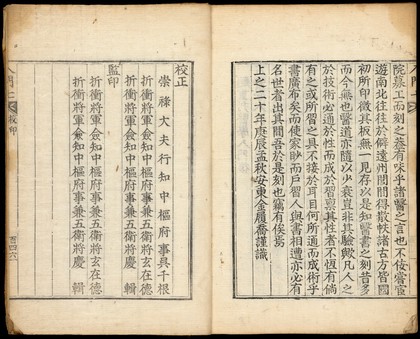 院募工而刻之蓋有味乎諸醫之言也不佞嘗宦
遊南北往往於僻遠州閭間得散帙諸古方皆國
初所印微其板無一見存以是知醫書之刻昔多
而今無也醫道亦隨以少衰豈非其驗歟凡人之
於技術必通於性而成於習禀其性者不恒有倘
有之或所習之具不接於耳目何所適而成術乎
書廣布矣而使家眇而戶習人與書相遭亦必有
名世者出其間吾於是刻也竊有俟焉
上之二十年庚辰孟秋安東金履喬謹識
校正
崇祿大夫行知中樞府事吳千根
折衝將軍僉知中樞府事兼五衛將玄在德
折衝將軍僉知中樞府事兼五衛將慶 輯
監印
折衝將軍僉知中樞府事兼五衛將玄在德
折衝將軍僉知中樞府事兼五衛將慶 輯
八門二
校印
百四六